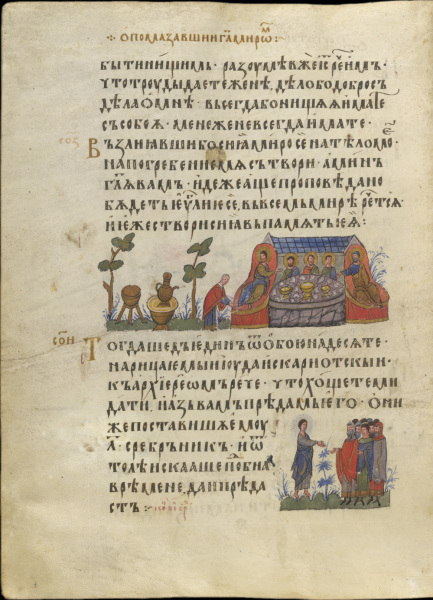 ѿ помазавшии га мирѡм:
быти нищимь · разоумѣв же іс рече имъ ·
что троуды даете женѣ, дѣло бо добро съ
дѣла ѡ мнѣ · въсегда бо нищѫѧ имате
съ собоѫ · мене же не въсегда имате ·
соз
Възліавши бо сиа миро се на тѣло мое
на погребение мѧ сътвори · аминъ
глѧ вамъ · идеже аще проповѣдано
бѫдетъ еѵлие се, въ всемь мирѣ · речетсѧ
и еже створи сиа въ памѧть еѧ :
сои
Тогда шедъ единъ ѿ обою на десѧте
нарицаемыи іоуда искариотскыи ·
къ архіереѡмъ рече · что хощете ми
дати, и азъ вамъ прѣдамь его · ѡни
же поставишѧ емоу
л҃ · сребръникъ · и ѿ
толѣ искааше подобна
врѣмене да и прѣда
стъ :·